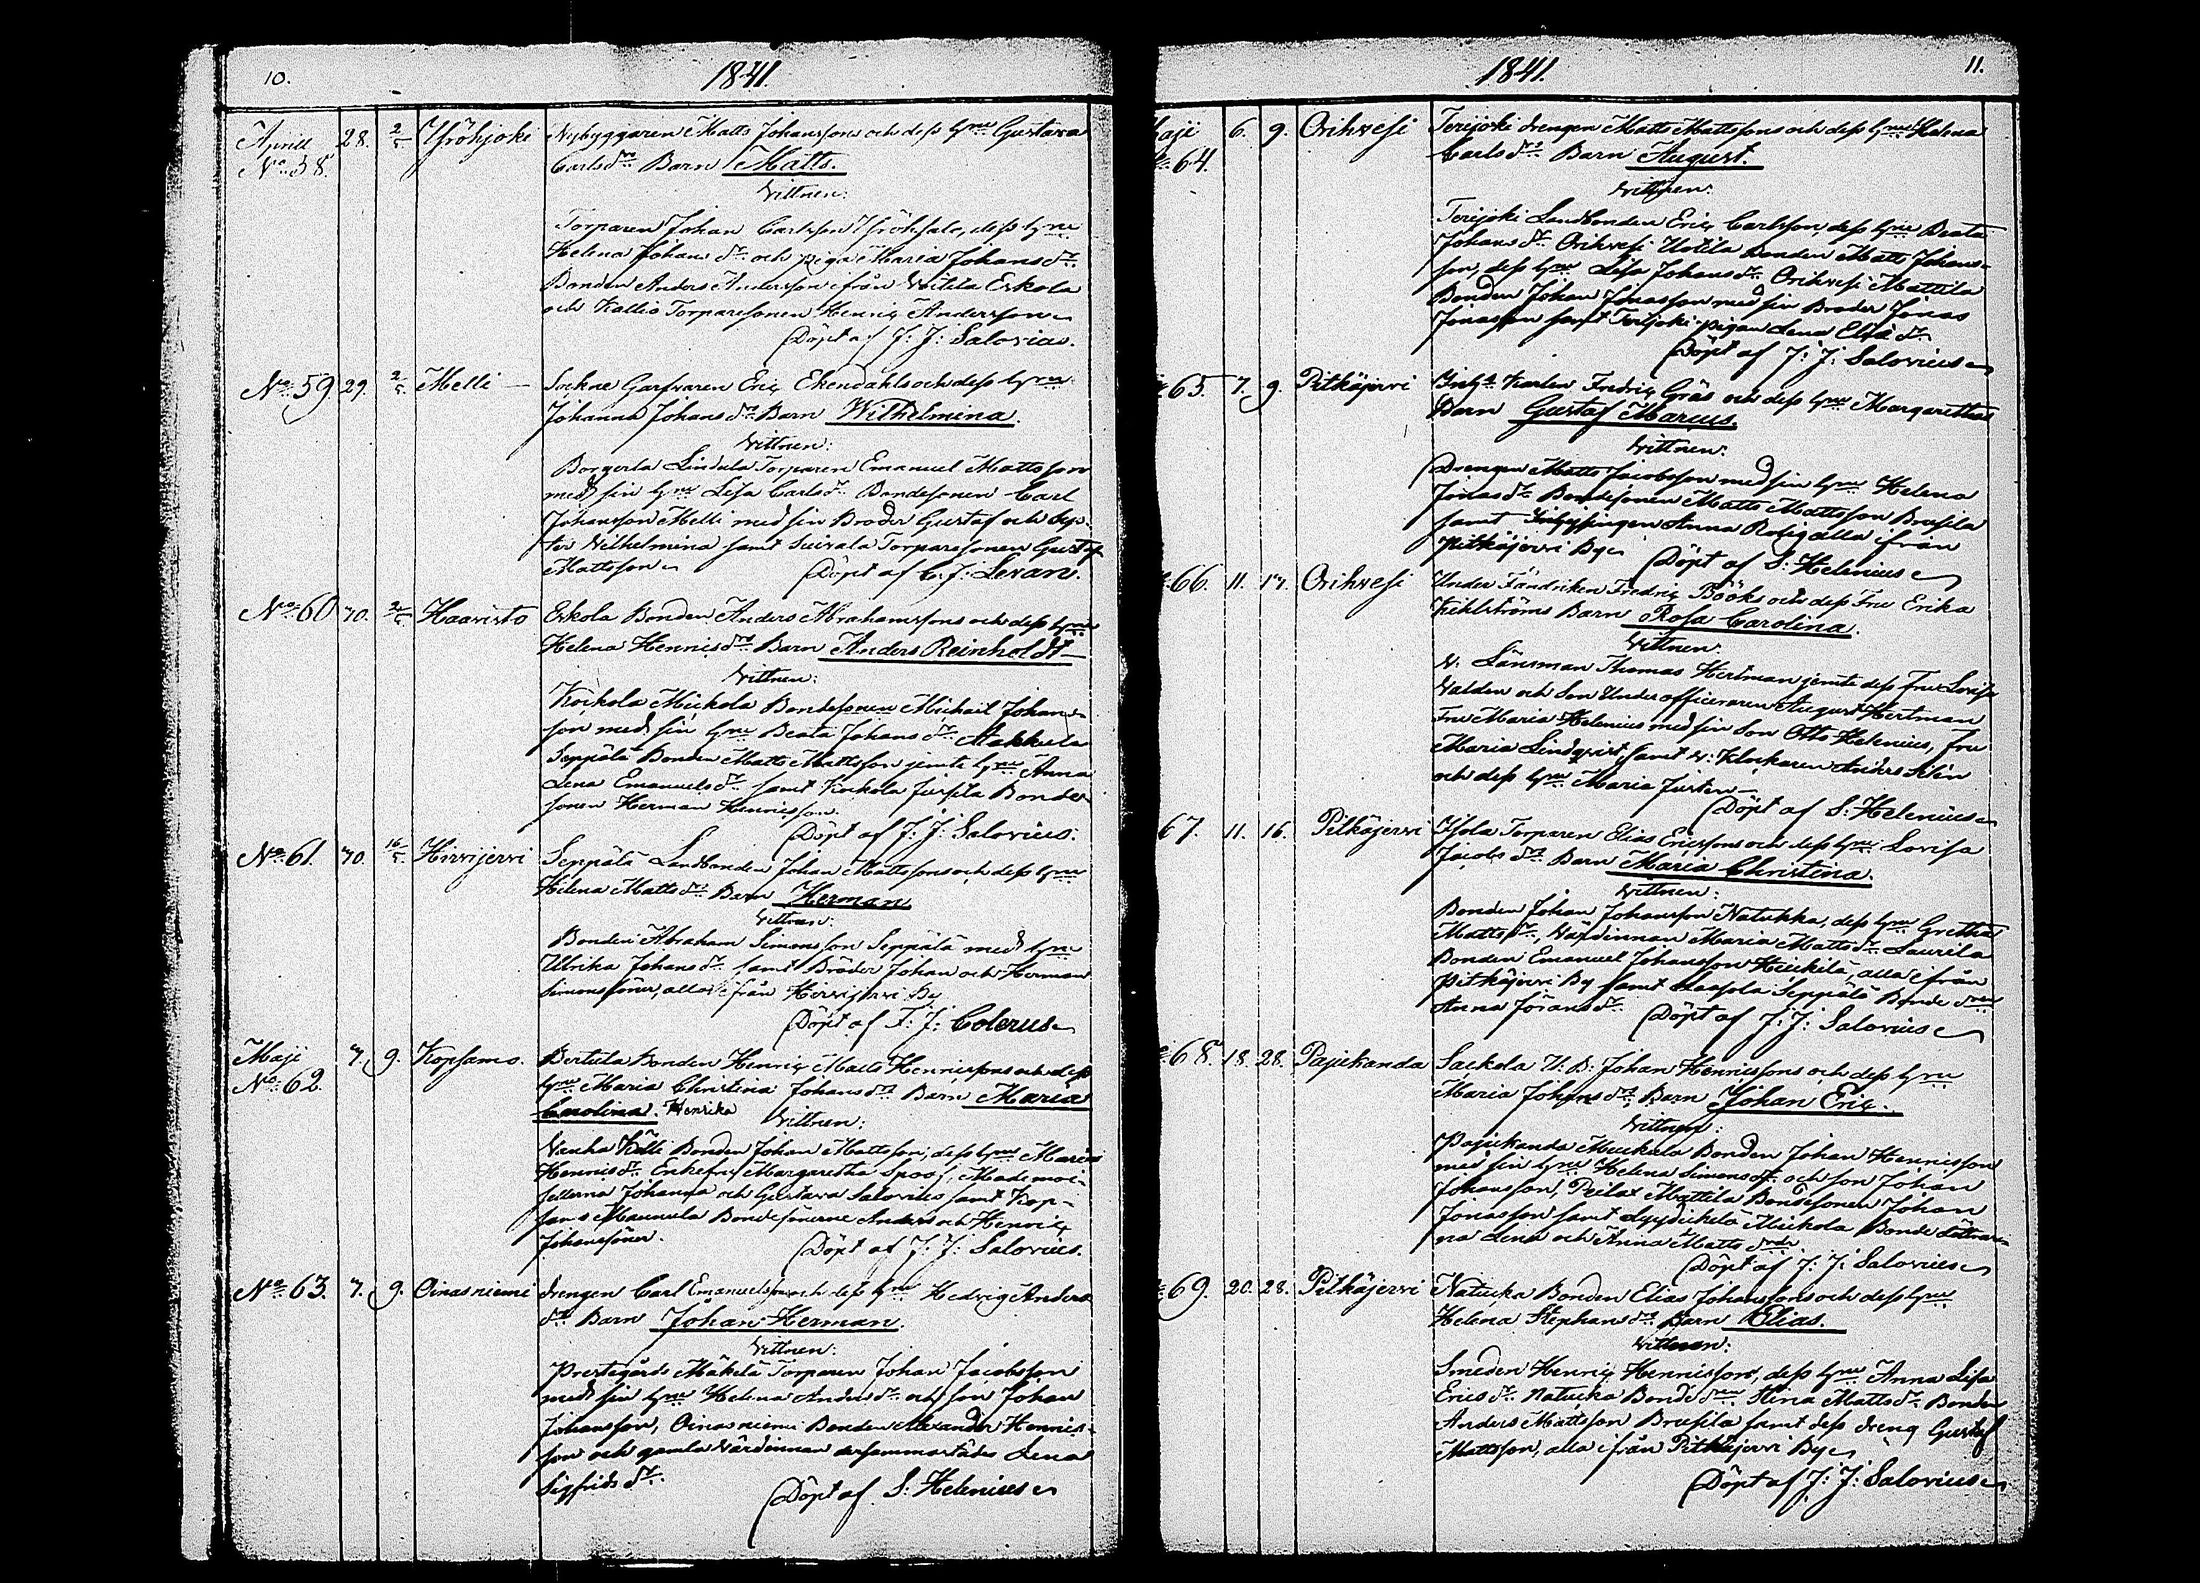 10.
1841.
Aprill 28. 2/5 Ylröhjoki Nybyggaren Matts Johanssons och dess hu Gustava
No 58. Carlsdrs Barn Matts.
Vittnen:
Torparen Johan Carlsson dess hu
Helena Johansdr och piga Maria Johansdr
Bonden Anders Andersson ifrån Uitila Eskola
och Kallio Torparesonen Henric Andersson
Döpt af J: J: Salovius.
No 59 29. 2/5 Melli Sockne Garfvaren Eric Ekendahls och dess hu
Johanna Johansdrs Barn Wilhelmina.
Vittnen:
Lindula Torparen Emanuel Mattsson
med sin hu Lisa Carlsdr Bondesonen Carl
Johansson Melli med sin Broder Gustaf och Sys-
ter Wilhelmina samt Suivala Torparesonen Gustaf
Mattsson
Döpt af C: J: Levan.
No 60 30. 2/5 Haavisto Eskola Bonden Anders Abrahamssons och dess hu
Helena Henricsdrs Barn Anders Reinholdt
Vittnen:
Koikola Mickola Bondesonen Michail Johans-
son med sin hu Beata Johansdr Hakkula
Seppälä Bonden Matts Mattsson jemte hu Anna
Lena Emanuelsdr samt Koikola Bonde-
sonen Herman Henricsson.
Döpt af J: J: Salovius.
No 61. 30. 16/5 Hirvijervi Seppälä Landbonden Johan Mattssons och dess hu
Helena Mattsdrs Barn Herman
Vittnen:
Bonden Abraham Simonsson Seppälä med hu
Ulrika Johansdr samt Bröder Johan och Herman
Simonssöner, alla ifrån Hirvijervi By
Döpt af F: J: Colerus
Maji 7. 9. Kopsamo. Bertula Bonden Henric Matts Henricssons och dess
No 62. hu Maria Christina Johansdrs Barn Maria
Carolina. Henrika
Vittnen:
Vanha Källi Bonden Johan Mattsson, dess hu Maria
Henricsdr Enkefru Margaretha Spoof, Mademoi-
sellerna Johanna och Gustava Salovius samt Kop-
samo Maunula Bondesönerne Anders och Henric
Johanssöner.
Döpt af J: J: Salovius.
No 63. 7. 9. Oinasniemi drengen Carl Emanuelssons och dess hu Hedvig Anders
dr Barn Johan Herman.
Vittnen:
Prestegårds Mäkelä Torparen Johan Jacobsson
med sin hu Helena Andersdr och son Johan
Johansson, Oinasniemi Bonden Alexander Henrics-
son och gamla Värdinnan dersammastädes Lena
Sigfridsdr
Döpt af S: Helenius
11.
1841.
Maji 6. 9. Orihvesi Terijoki drengen Matts Mattssons och dess hu Helena
64. Carlsdrs Barn August.
Vittnen:
Terijoki Landbonden Eric Carlsson dess hu Beata
Johansdr Orihvesi Uotila Bonden Matts Johans-
son, dess hu Lisa Johansdr Orihvesi Mattila
Bonden Johan Jonasson med sin Broder Jonas
Jonasson samt Terijoki pigan Lena Eliædr
Döpt af J: J: Salovius
65. 7. 9. Pitkäjervi Karlen Fredric Gräs och dess hu Margarethas
Barn Gustaf Marcus.
Vittnen:
Drengen Matts Jacobsson med sin hu Helena
Jonasdr Bondesonen Matts Mattsson Brusila
samt Inhysingen Anna Rolig alla ifrån
Pitkäjervi By
Döpt af S: Helenius
66. 11. 17. Orihvesi Under Fändriken Fredric Bööks och dess Fru Erika
Kihlströms Barn Rosa Carolina.
Vittnen:
V. Länsman Thomas Hertman jemte dess Fru Lovisa
Walden och Son Underofficeraren August Hertman
Fru Maria Helenius med sin Son Otto Helenius, Fru
Maria Lindqvist samt V: Klockaren Anders Silén
och dess hu Maria
Döpt af S: Helenius
67. 11. 16. Pitkäjervi Ylola Torparen Elias Ericssons och dess hu Lovisa
Jacobsdrs Barn Maria Christina.
Vittnen:
Bonden Johan Johansson Natukka, dess hu Gretha
Mattsdr, Värdinnan Maria Mattsdr Laurila
Bonden Emanuel Johansson Heickilä, alla ifrån
Pitkäjervi By samt Seppälä Bondedrn
Anna Göransdr
Döpt af J: J: Salovius
68. 18. 28. Pajukanda Sackola U: B: Johan Henricssons och dess hu
Maria Johansdrs Barn Johan Eric.
Vittnen:
Pajukanda Muckala Bonden Johan Henricsson
med sin hu Helena Simonsdr och son Johan
Johansson, Peilax Mattila Bondesonen Johan
Jonasson samt Lyydickelä Mickola Bonde döttrar-
na Lena och Anna Mattsdrar
Döpt af J: J: Salovius
69. 20. 28. Pitkäjervi Natucka Bonden Elias Johanssons och dess hu
Helena Stephansdrs Barn Elias.
Vittnen:
Smeden Henric Henricsson, dess hu Anna Lisa
Ericsdr Natucka Bondedrn Stina Mattsdr Bonden
Anders Mattsson Brusila samt dess dreng Gustaf
Mattsson, alla ifrån Pitkäjervi By
Döpt af J: J: Salovius